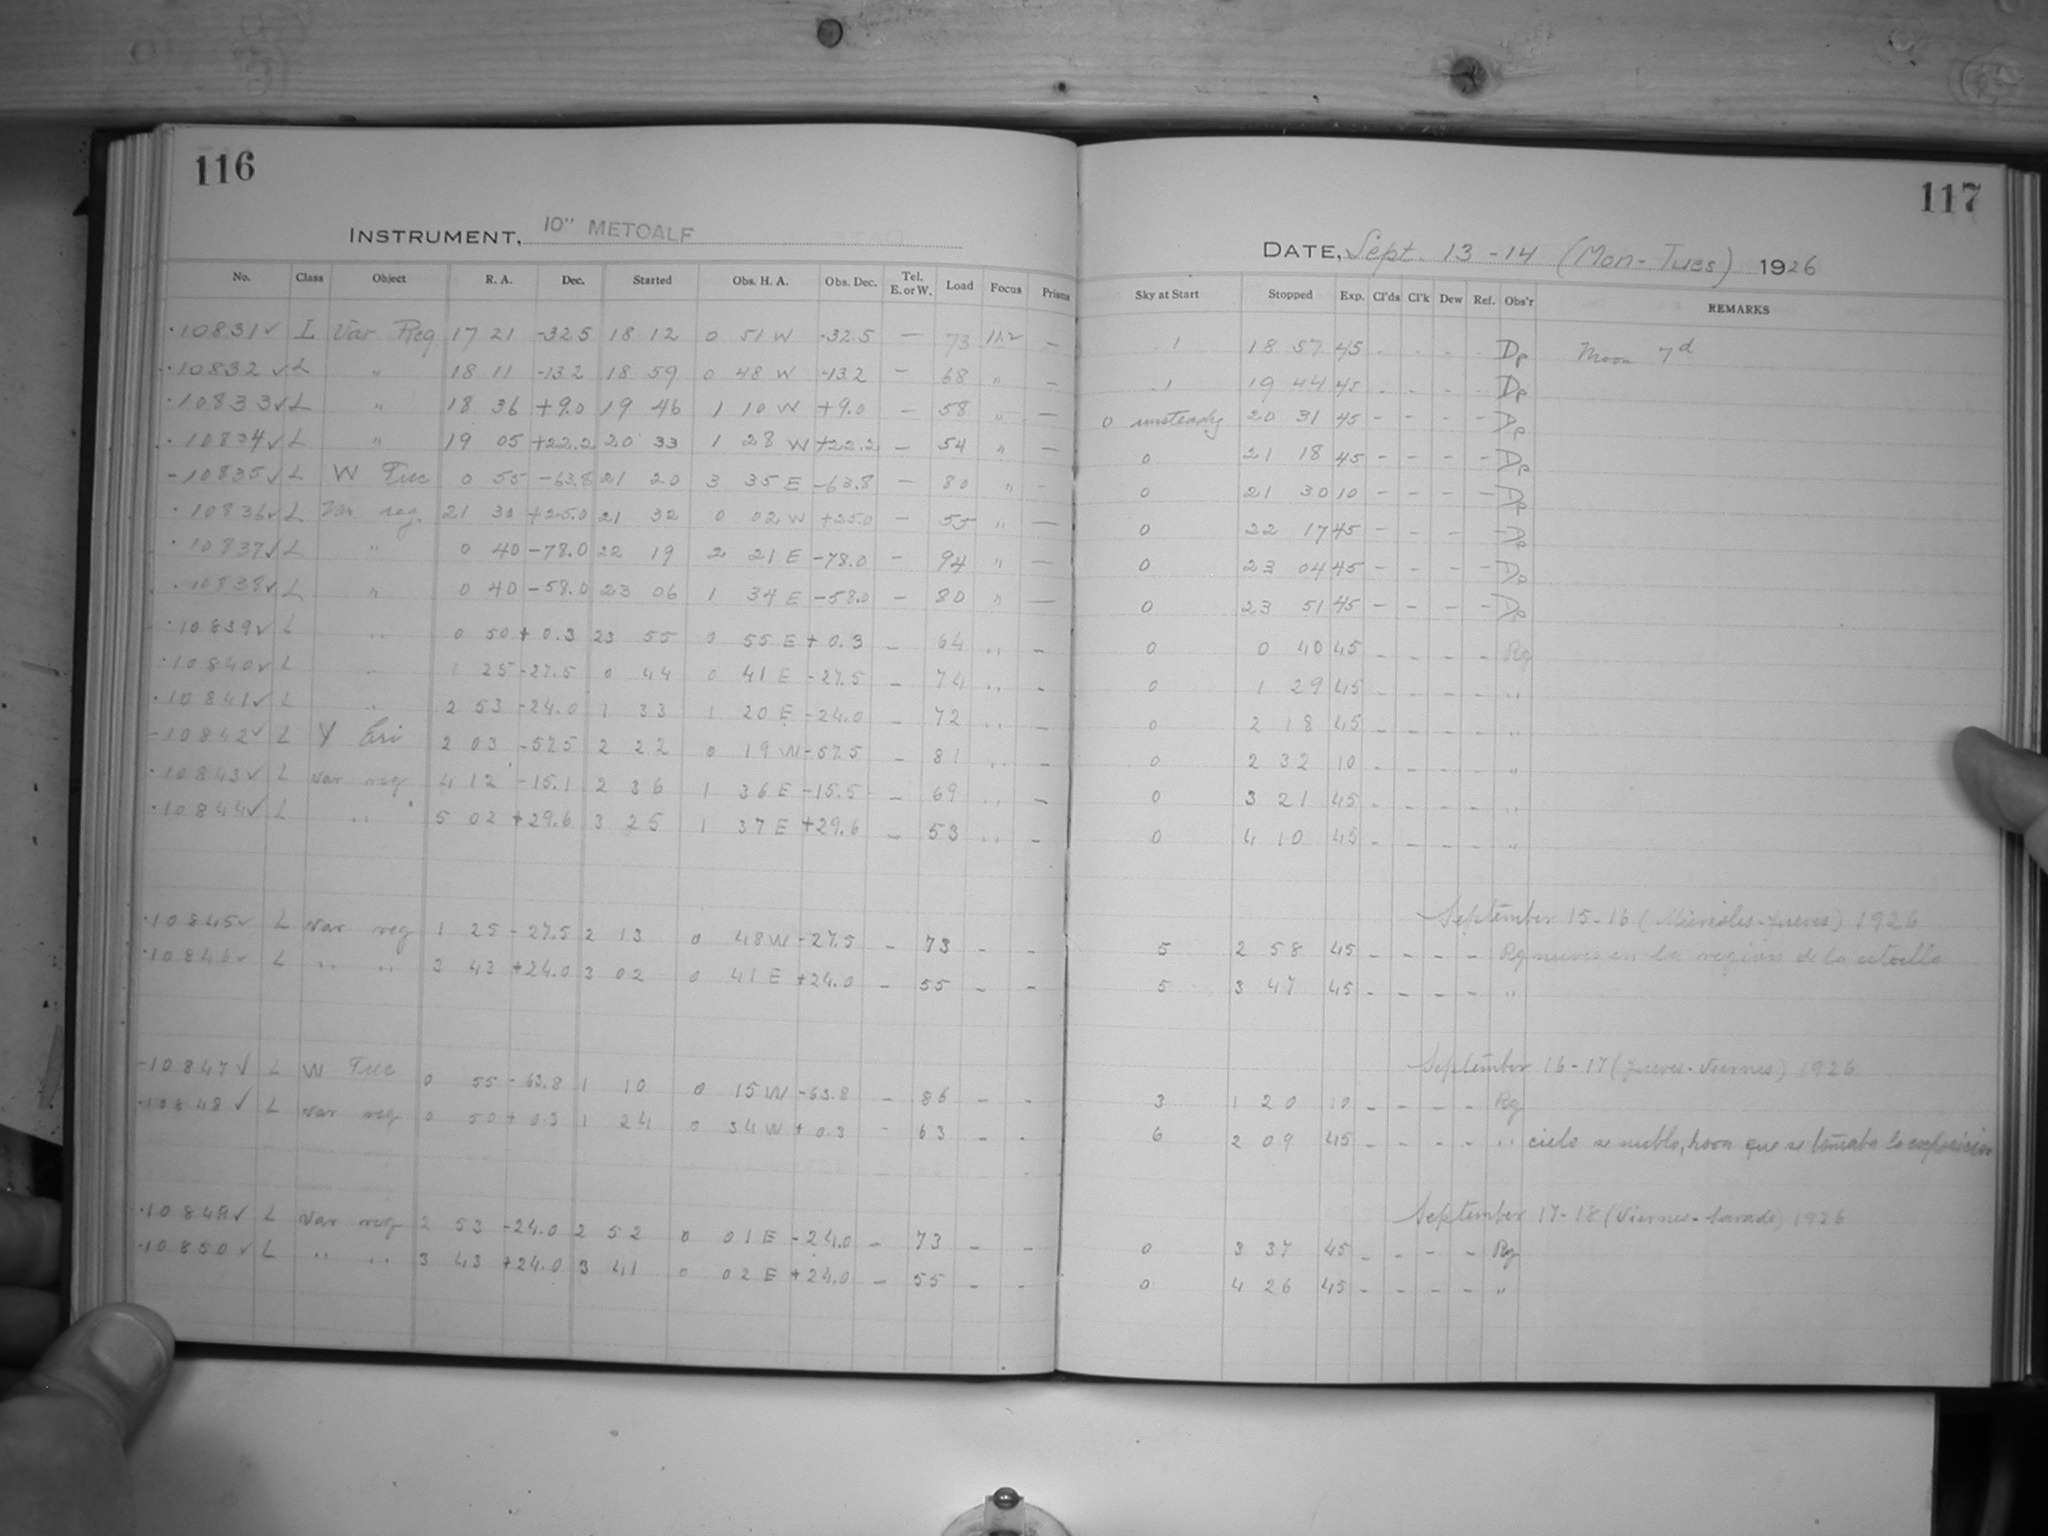 116
INSTRUMENT, 10" METCALF
No. Class Object R. A. Dec. Started Obs. H. A. Obs. Dec. Tel. E. or W. Load Focus Prisms
·10831✓ L Var Reg 17 21 -32.5 18 12 0 51 W -32.5 — 73 11.2 —
·10832✓ L " 18 11 -13.2 18 59 0 48 W -13.2 — 68 " —
·10833✓ L " 18 36 +9.0 19 46 1 10 W +9.0 — 58 " —
·10834✓ L " 19 05 +22.2 20 33 1 28 W +22.2 — 54 " —
-10835✓ L W Tuc 0 55 -63.8 21 20 3 35 E -63.8 — 80 " —
·10836✓ L Var reg. 21 30 +25.0 21 32 0 02 W +25.0 — 55 " —
·10837✓ L " 0 40 -78.0 22 19 2 21 E -78.0 — 94 " —
·10838✓ L " 0 40 -58.0 23 06 1 34 E -58.0 — 80 " —
·10839✓ L " 0 50 +0.3 23 55 0 55 E +0.3 — 64 " —
·10840✓ L " 1 25 -27.5 0 44 0 41 E -27.5 — 74 " —
·10841✓ L " 2 53 -24.0 1 33 1 20 E -24.0 — 72 " —
-10842✓ L Y Eri 2 03 -57.5 2 22 0 19 W -57.5 — 81 " —
·10843✓ L Var reg 4 12 -15.1 2 36 1 36 E -15.5 — 69 " —
·10844✓ L " 5 02 +29.6 3 25 1 37 E +29.6 — 53 " —
·10845✓ L Var reg 1 25 -27.5 2 13 0 48 W -27.5 — 73 — —
·10846✓ L " " 3 43 +24.0 3 02 0 41 E +24.0 — 55 — —
-10847✓ L W Tuc 0 55 -63.8 1 10 0 15 W -63.8 — 86 — —
·10848✓ L Var reg 0 50 +0.3 1 24 0 34 W +0.3 — 63 — —
·10849✓ L Var reg 2 53 -24.0 2 52 0 01 E -24.0 — 73 — —
·10850✓ L " " 3 43 +24.0 3 41 0 02 E +24.0 — 55 — —
117
DATE, Sept. 13-14 (Mon-Tues) 1926
Sky at Start Stopped Exp. Cl'ds Cl'k Dew Ref. Obs'r REMARKS
1 18 57 45 - - - - Dp Moon 7d
1 19 44 45 - - - - Dp
0 unsteady 20 31 45 - - - - Dp
0 21 18 45 - - - - Dp
0 21 30 10 - - - - Dp
0 22 17 45 - - - - Dp
0 23 04 45 - - - - Dp
0 23 51 45 - - - - Dp
0 0 40 45 - - - - Rg
0 1 29 45 - - - - "
0 2 18 45 - - - - "
0 2 32 10 - - - - "
0 3 21 45 - - - - "
0 4 10 45 - - - - "
September 15-16 (Miercoles-Jueves) 1926
5 2 58 45 - - - - Rg nuves en la region de la estrella
5 3 47 45 - - - - "
September 16-17 (Jueves-Viernes) 1926
3 1 20 10 - - - - Rg
6 2 09 45 - - - - " cielo se nublo, hora que se tomaba la exposicion
September 17-18 (Viernes-Savado) 1926
0 3 37 45 - - - - Rg
0 4 26 45 - - - - "